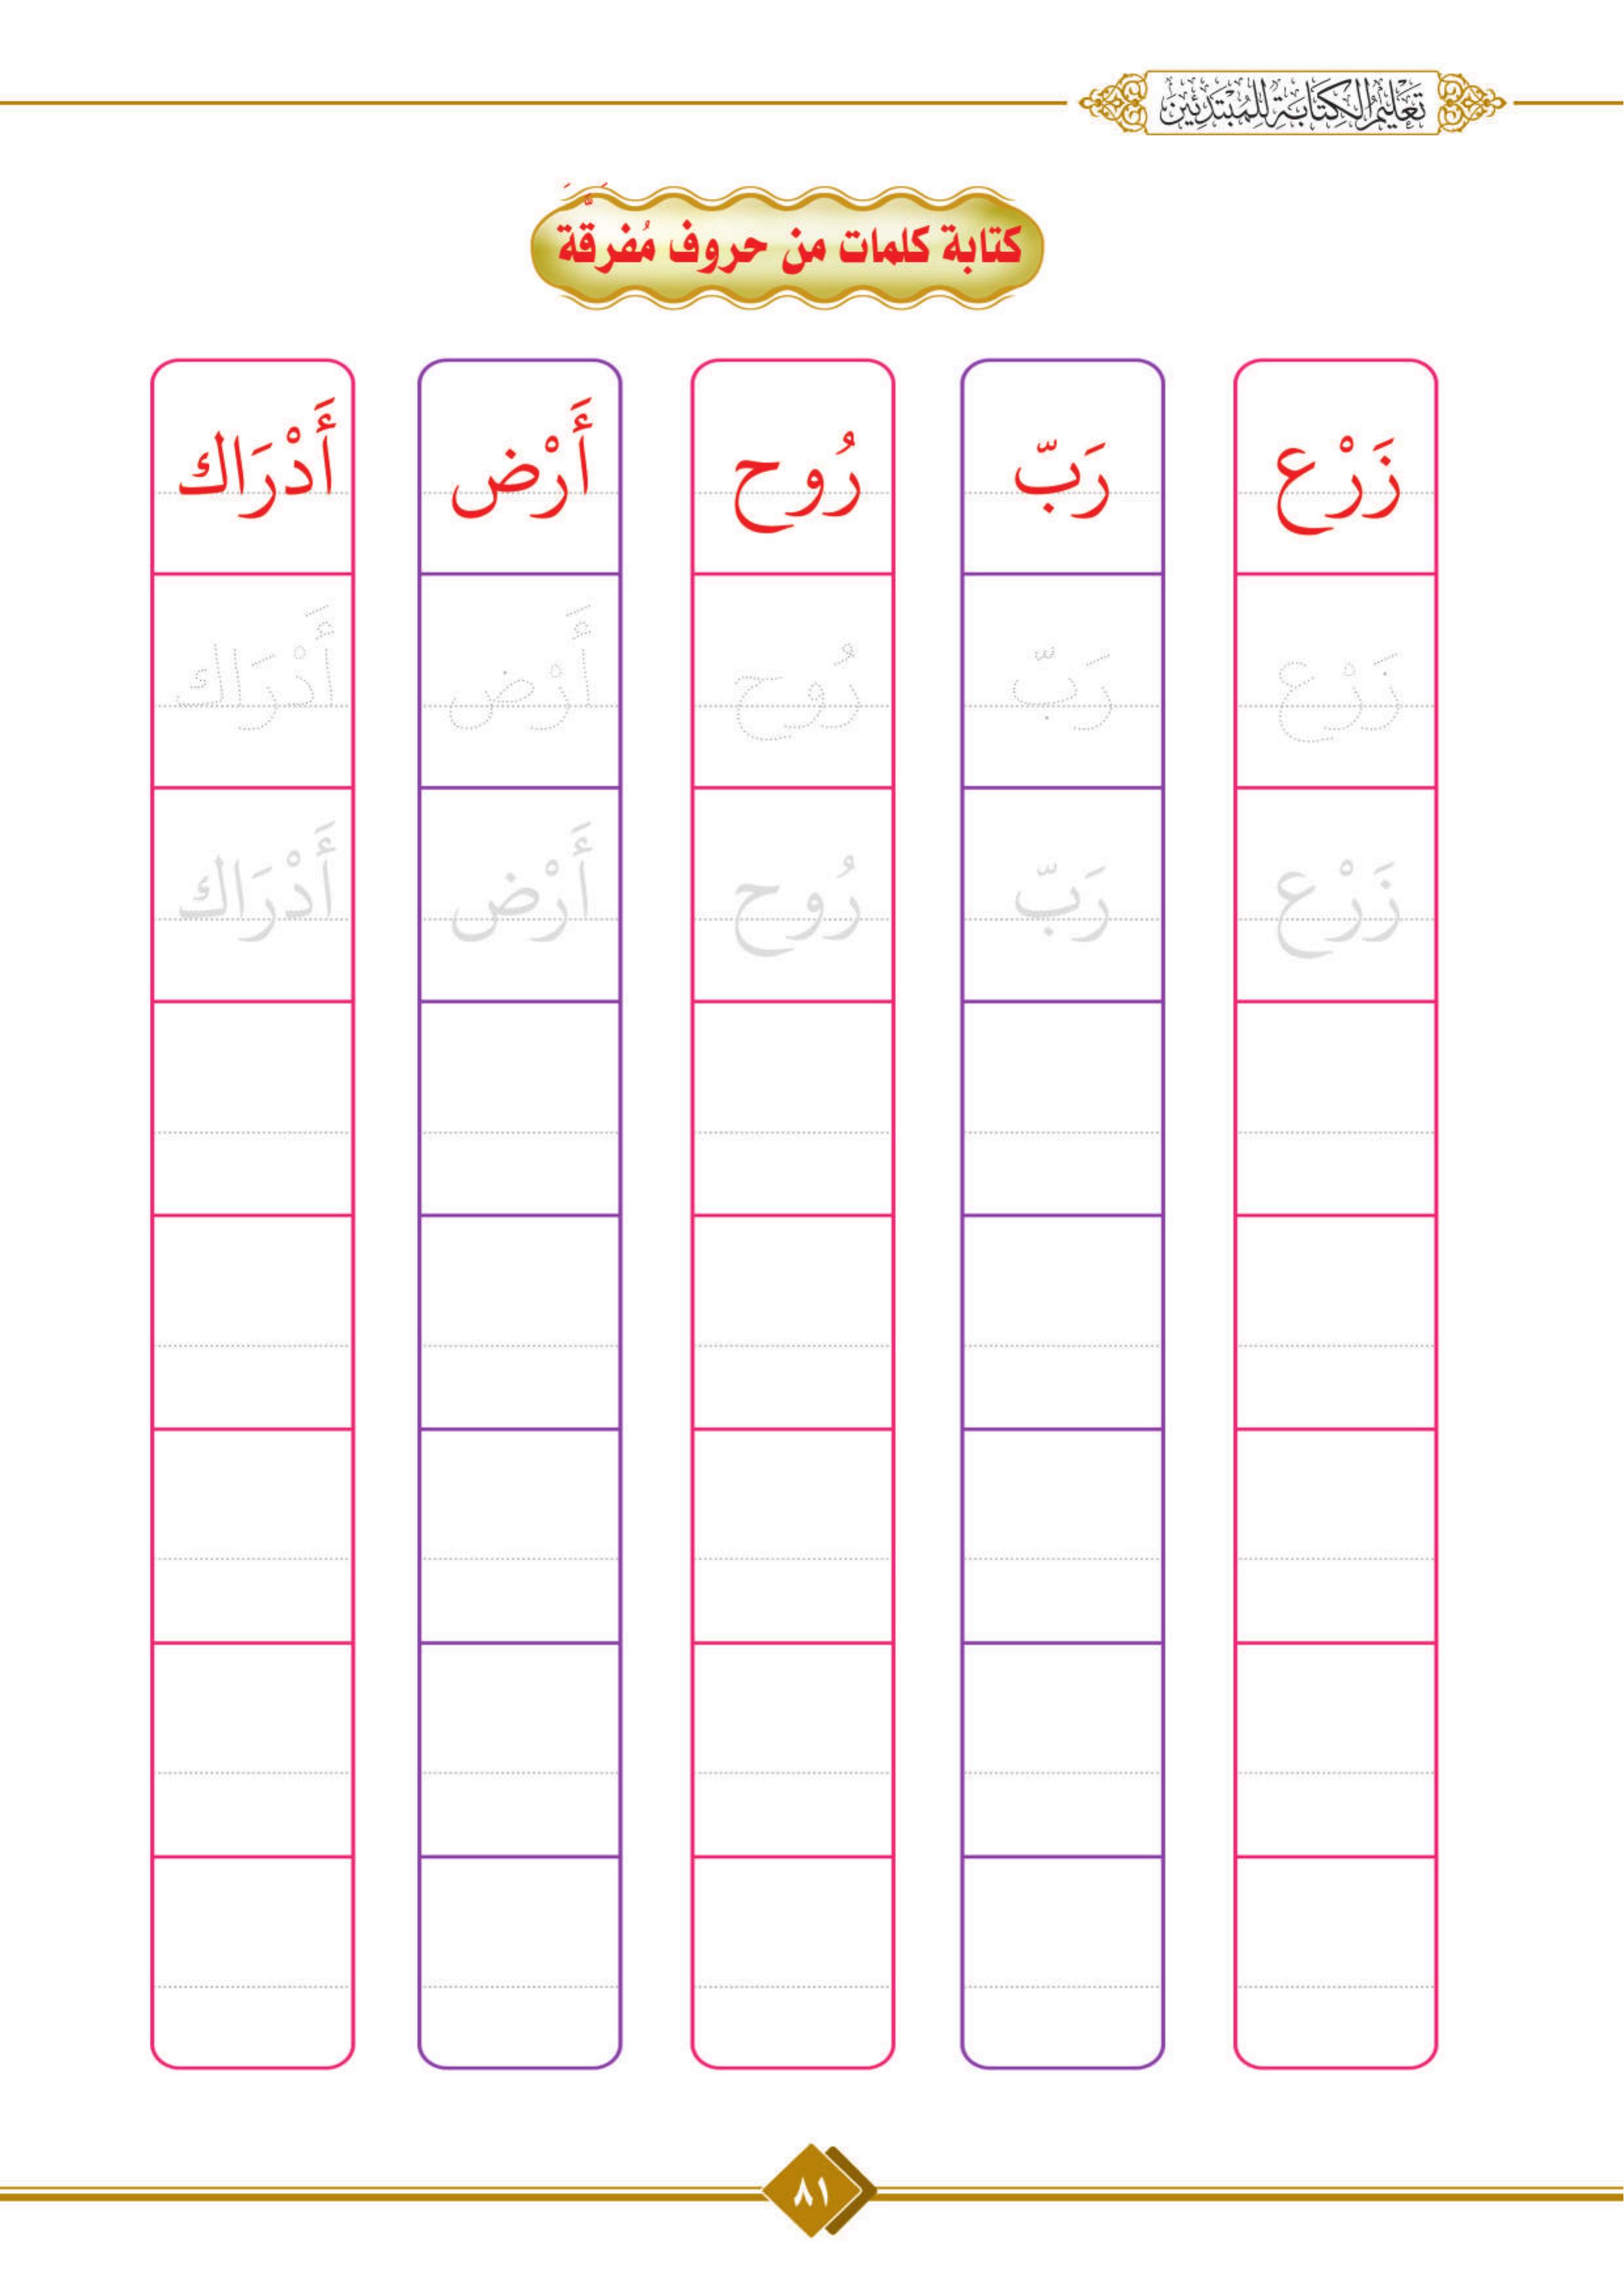 تَعْلِيمُ الْكِتَابَةِ لِلْمُبْتَدِئِينَ
كتابة كلمات من حروف مُفَرَّقَة
زَرْع رَبّ رُوح أَرْض أَدْرَاك
زَرْع رَبّ رُوح أَرْض أَدْرَاك
زَرْع رَبّ رُوح أَرْض أَدْرَاك
٨١